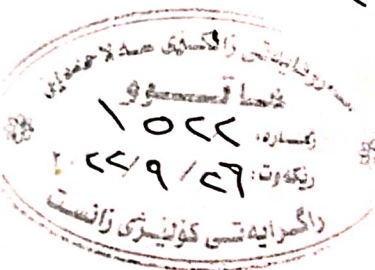 سەرۆکایەتی زانکۆی سەلاحەدین
ژمارە: ١٥٢٢
ڕێکەوت: ٢٠٢٢/٩/٢٦
ڕاگرایەتی کۆلێژی زانست